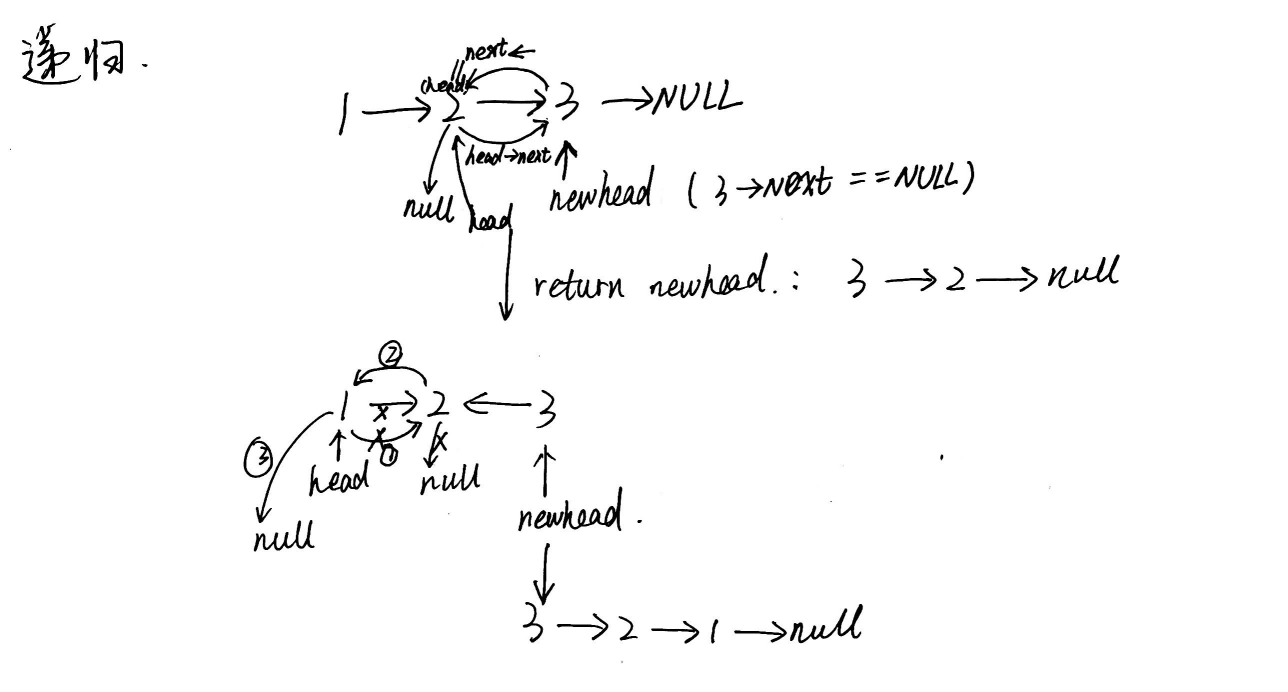 递归.
next ←
(head)
1 → 2 → 3 → NULL
head→next
null head newhead ( 3 → Next == NULL )
return newhead. : 3 → 2 → null
②
1 → 2 ← 3
x
③ x ① x
head null
newhead.
null
3 → 2 → 1 → null